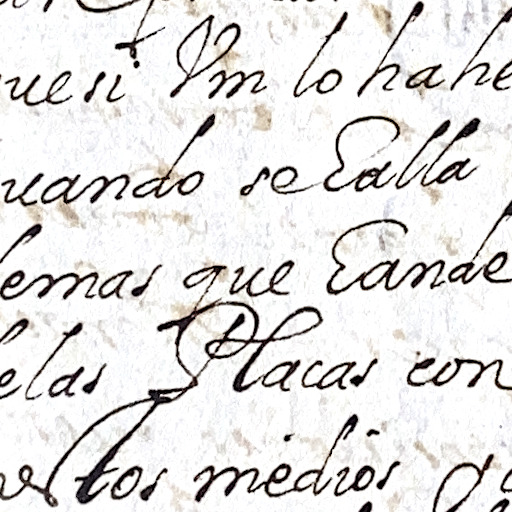 uesi Vm lo hahe
uando se Calla
emas que Cande
elas Placas con
estos medios